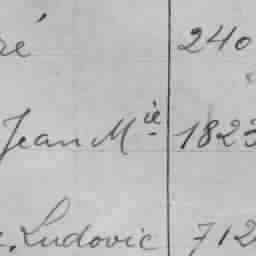 ré 240
Jean Mie 1823
c, Ludovic 712